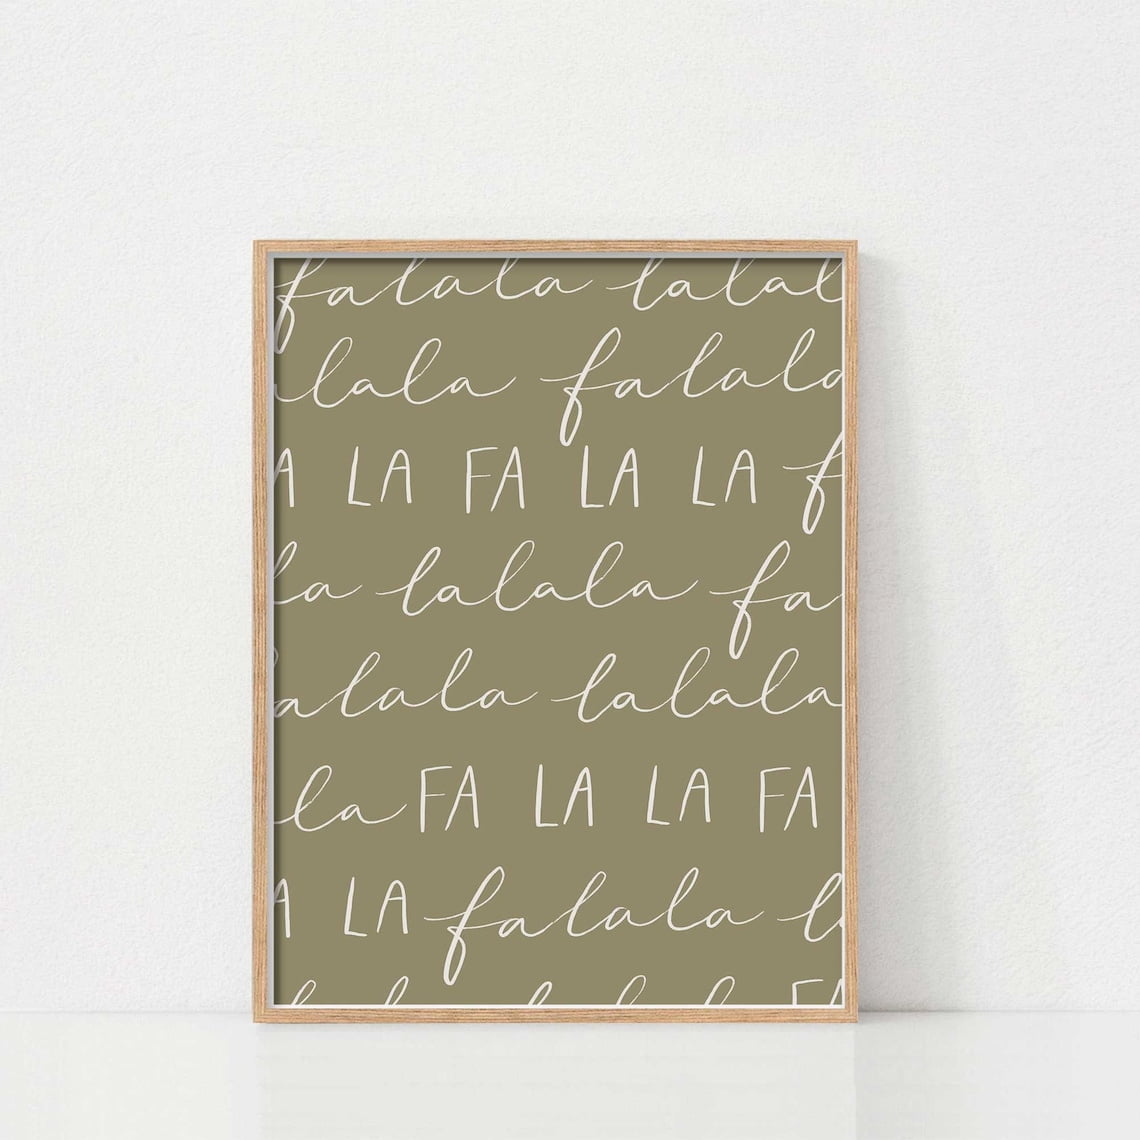 falala lalal
lala falala
A LA FA LA LA f
la lalala fa
alala lalala
la FA LA LA FA
A LA falala l